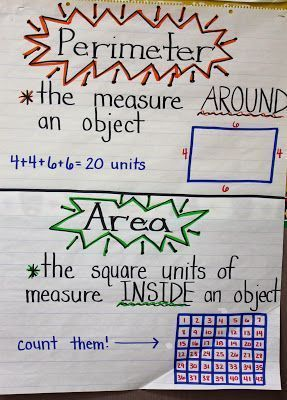 Perimeter
*the measure AROUND
an object
4+4+6+6=20 units
6
4 4
6
Area
*the square units of
measure INSIDE an object
count them!
1 2 3 4 5 6 7
8 9 10 11 12 13 14
15 16 17 18 19 20 21
22 23 24 25 26 27 28
29 30 31 32 33 34 35
36 37 38 39 40 41 42